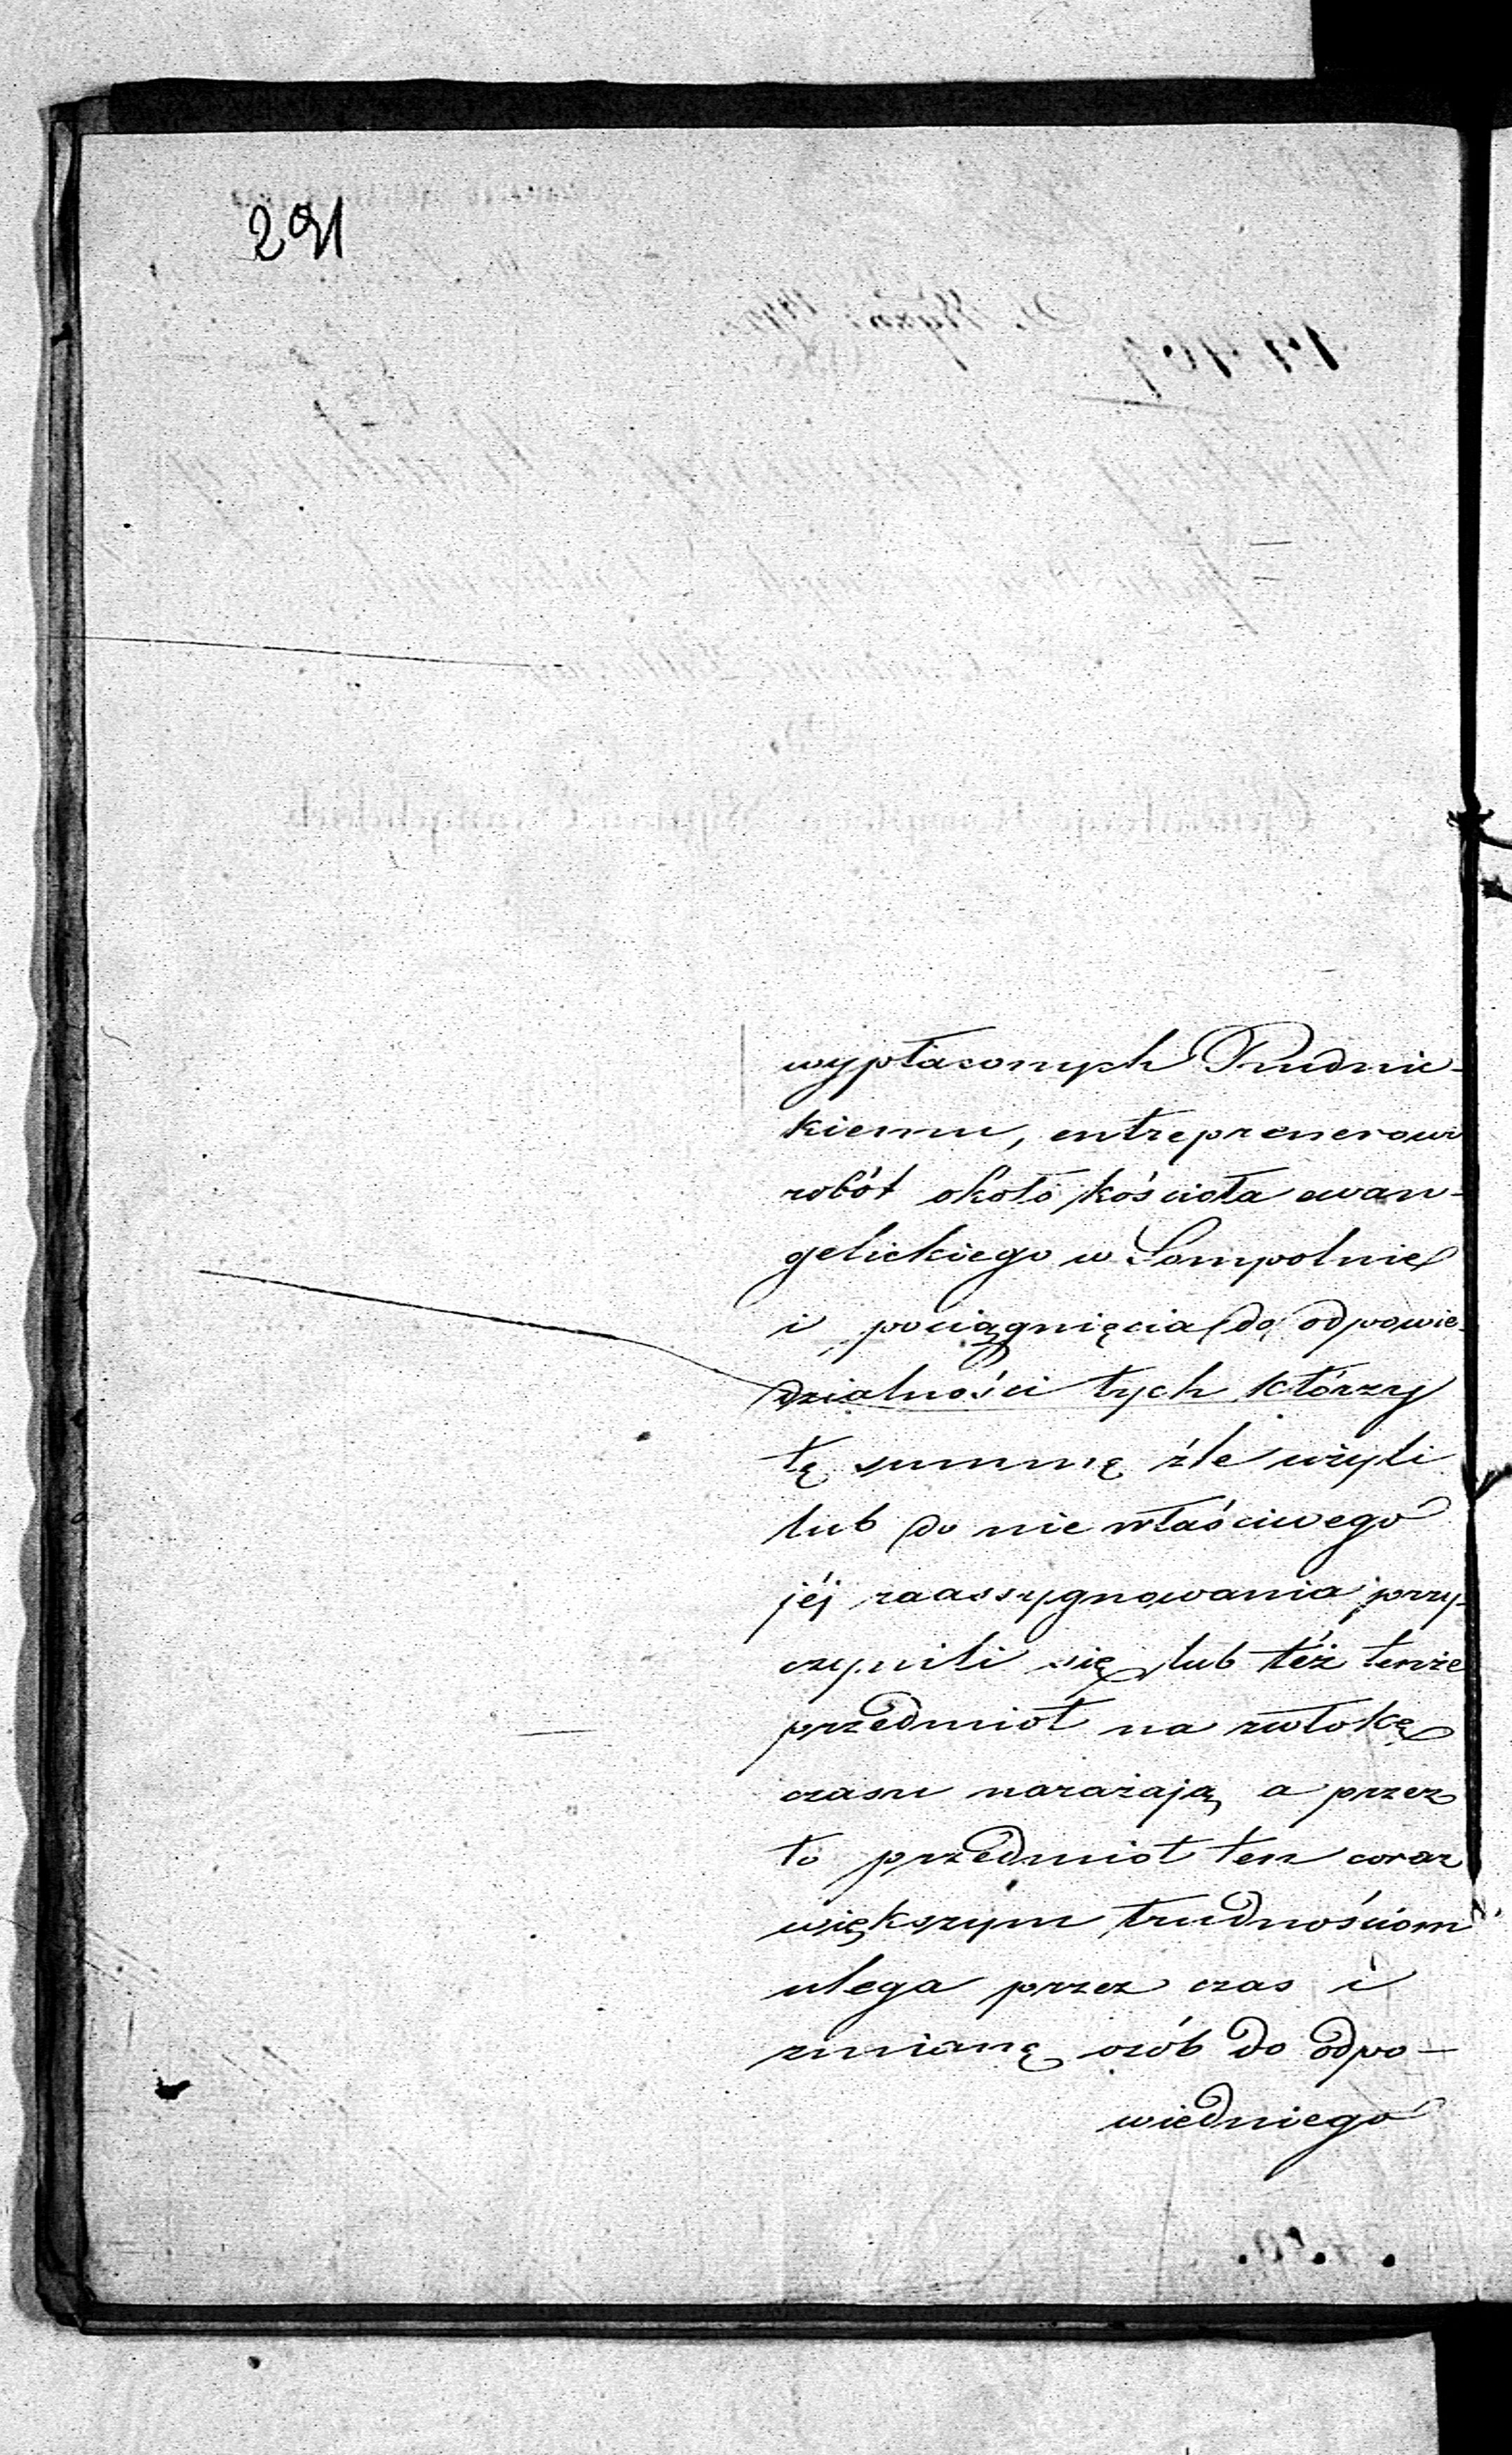 291
wypłaconych Prudnic-
kiemu, entreprenerowi
robót około kościoła ewan-
gelickiego w Sompolnie
i pociągnięcia do odpowie-
dzialności tych którzy
tę summę źle użyli
lub do nie właściwego
jéj zaassygnowania przy-
czynili się lub téż tenże
przedmiot na zwłokę
czasu narażają a przez
to przedmiot ten coraz
większym trudnościom
ulega przez czas i
zmianę osób do odpo-
wiedniego